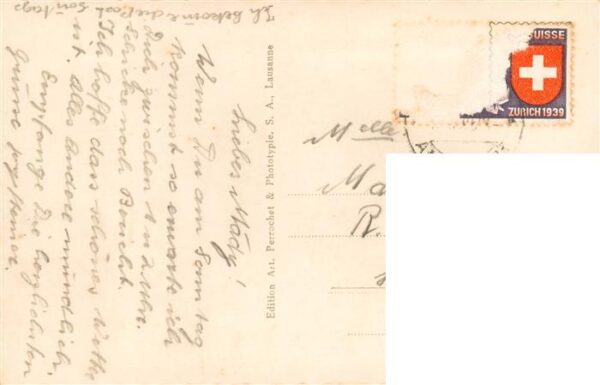 Ich bekomme die Post
Sontags
Liebes Mädy!
Wenn Du am Sonntag
kommst so erwarte ich
Dich zwischen 1 u 2 Uhr.
schicke noch Bericht.
Ich hoffe dass schönes Wetter
ist. Alles andere mündlich.
Empfange Die herzlichsten
Grüsse
Edition Art. Perrochet & Phototypie, S. A., Lausanne
SUISSE
ZURICH 1939
Melle
Ma
R.